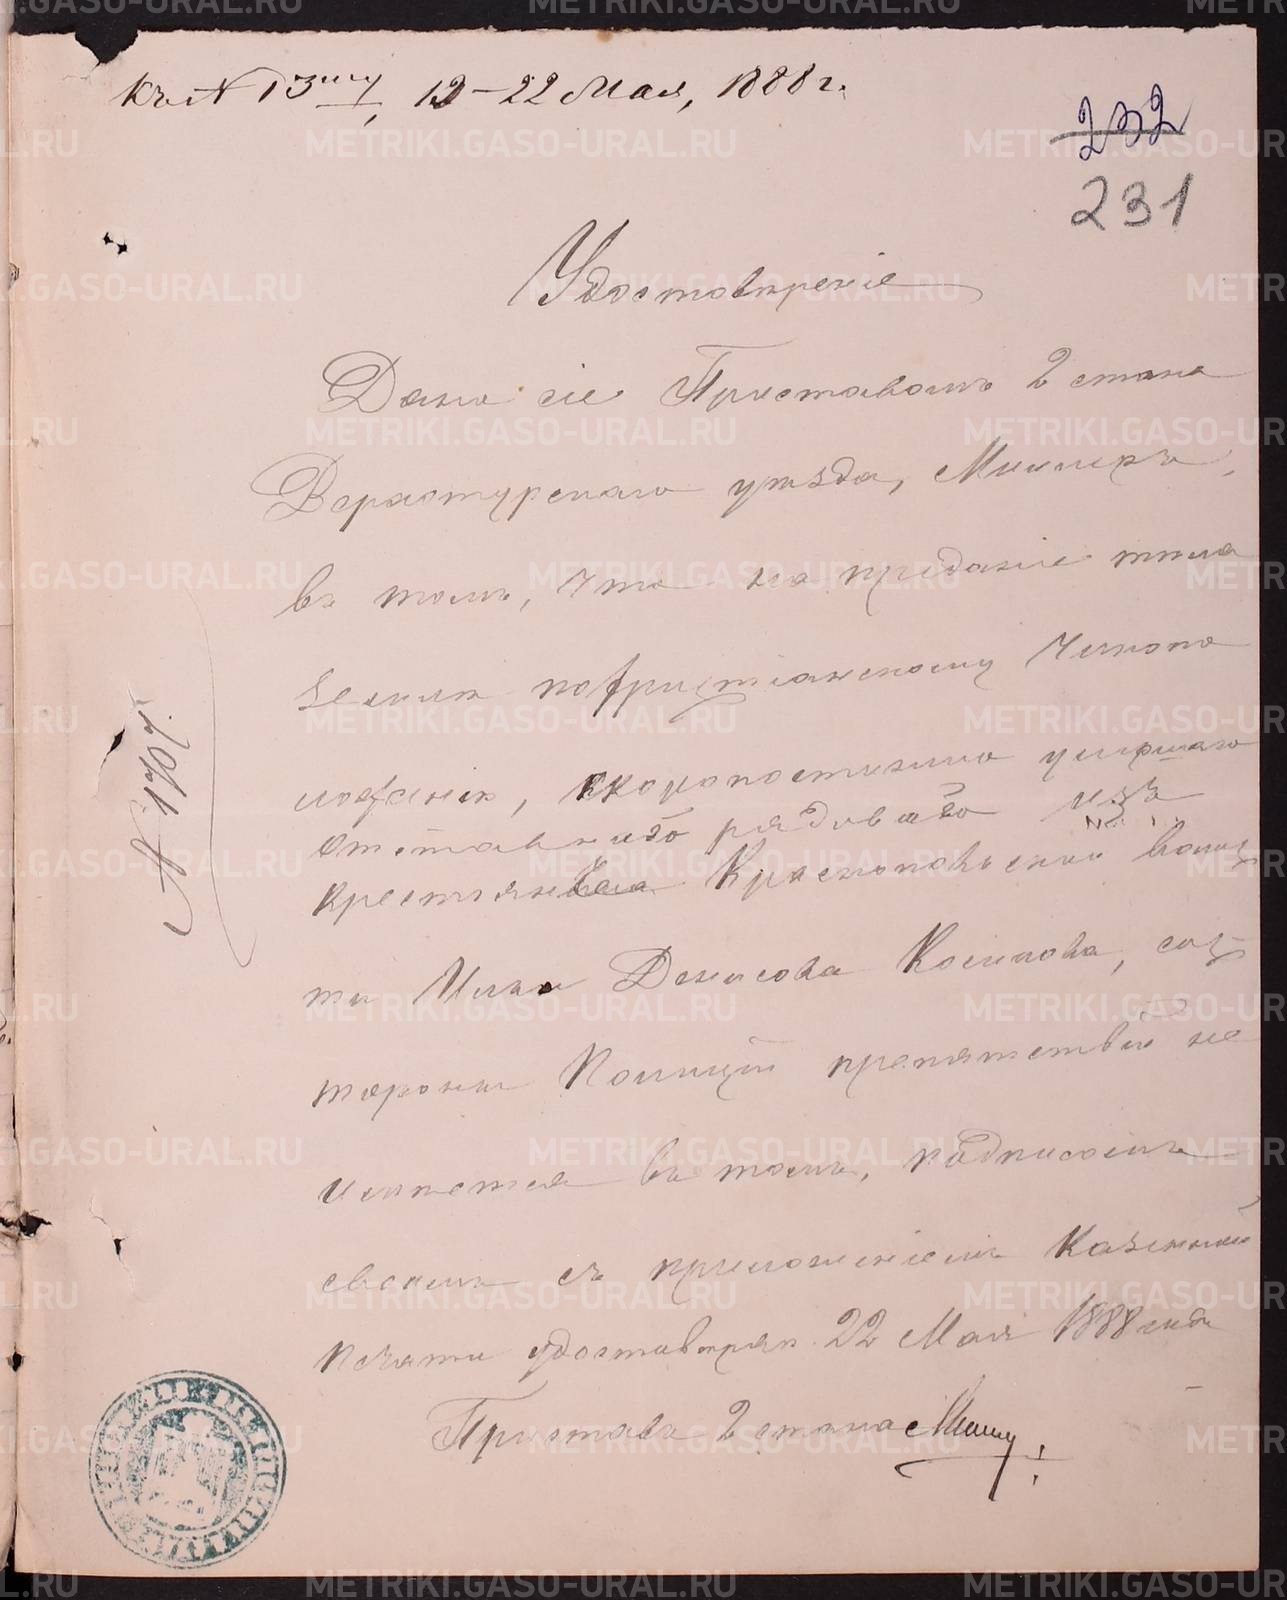 Къ № 13му, 19–22 Мая, 1888 г.
232
231
Удостовѣреніе
Дано сіе Приставомъ 2 стана
Верхотурскаго уѣзда, Миллеръ,
въ томъ, что на преданіе тѣла
землѣ по христіанскому
скоропостижно умершаго
отставнаго рядоваго изъ
крестьян Краснопольской волос
ти Ильи Денисова Косикова, со с
тороны Полиціи препятствій не
имѣется въ томъ, подписомъ
своимъ съ приложеніемъ Казенной
печати удостовѣряю 22 Мая 1888 года
Приставъ 2 стана Миллеръ
№ 1707.
METRIKI.GASO-URAL.RU